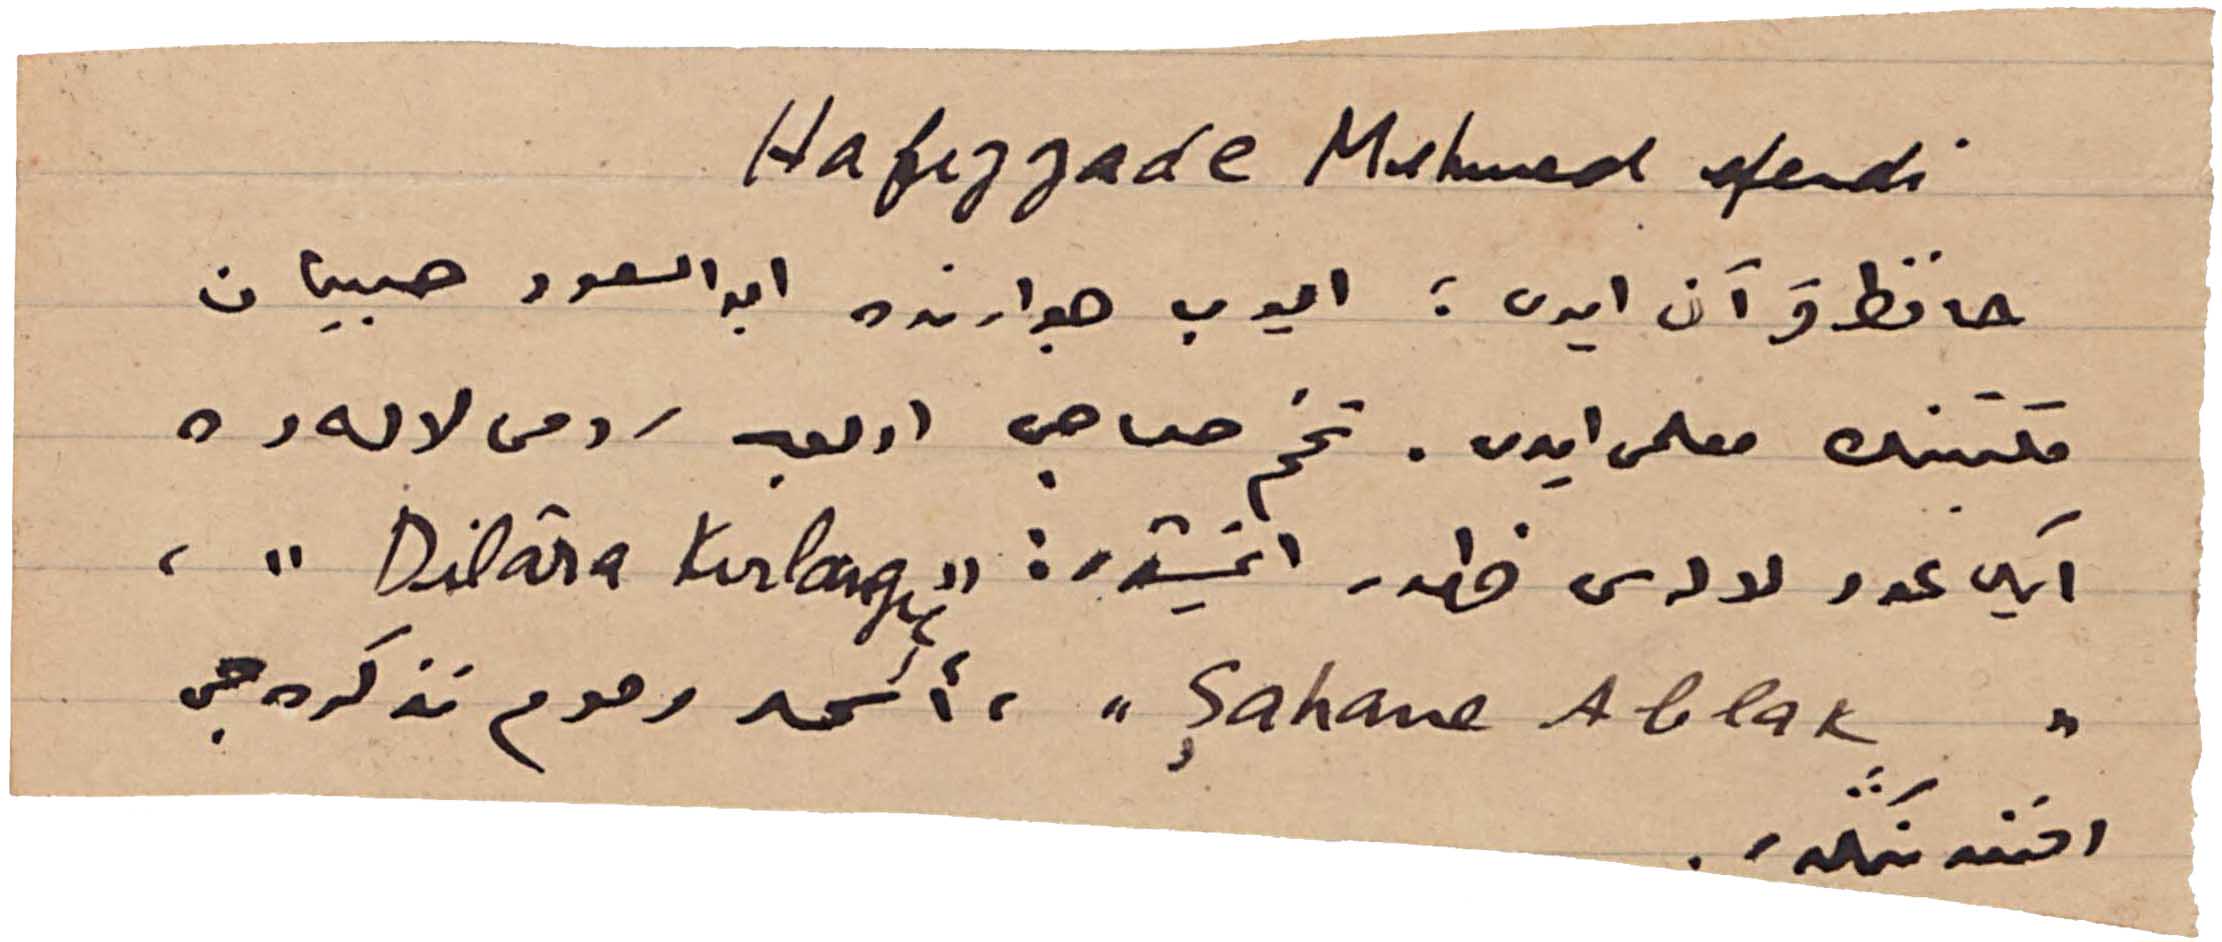 Hafızzade Mehmed efendi
حافظ قرآن ایدی ؛ ایوب جوارنده ابو السعود صبیان
مکتبنك معلمی ایدی . تخم صاحبی اولوب رومی لاله ده
ایکی عدد لاله سی ظهور ایتمشدر : " Dilâra Kırlangıç " ،
" Şahane Ablak " ، مرحوم تذکره جی
افندینكدر .